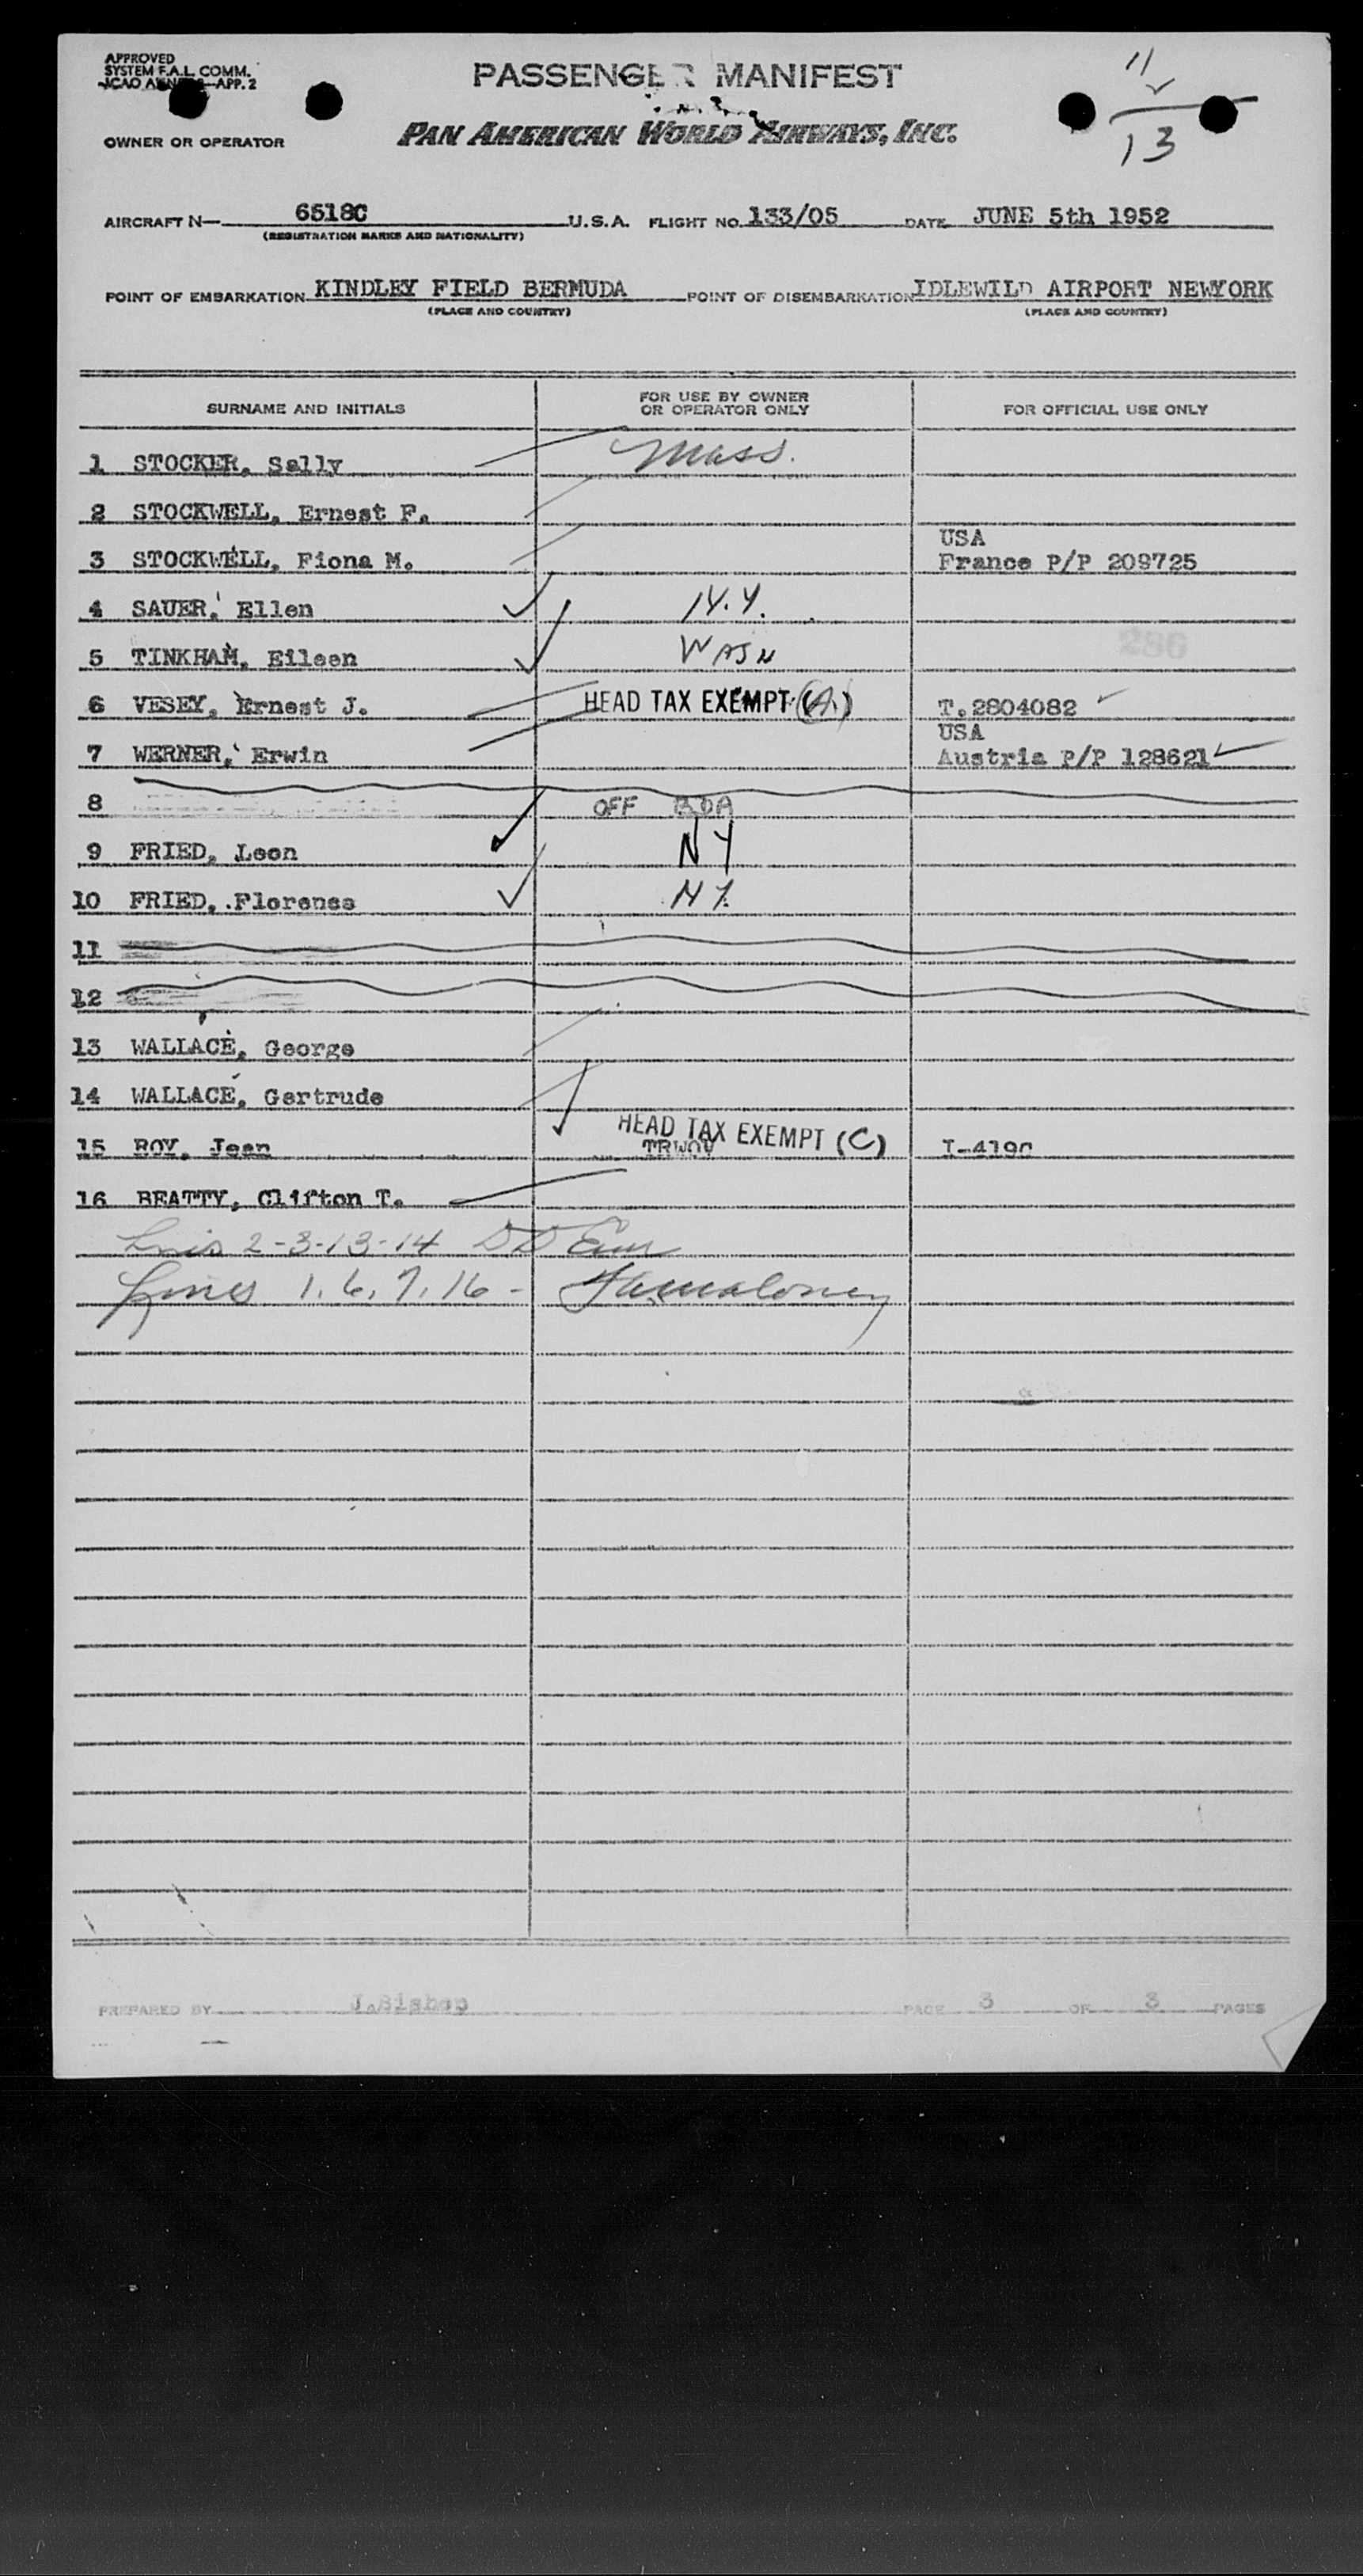 APPROVED
SYSTEM F.A.L. COMM.
ICAO ANNEX 9—APP. 2
PASSENGER MANIFEST
11
13
OWNER OR OPERATOR PAN AMERICAN WORLD AIRWAYS, INC.
AIRCRAFT N— 6518C U.S.A. FLIGHT NO. 133/05 DATE JUNE 5th 1952
(REGISTRATION MARKS AND NATIONALITY)
POINT OF EMBARKATION KINDLEY FIELD BERMUDA POINT OF DISEMBARKATION IDLEWILD AIRPORT NEWYORK
(PLACE AND COUNTRY) (PLACE AND COUNTRY)
SURNAME AND INITIALS FOR USE BY OWNER OR OPERATOR ONLY FOR OFFICIAL USE ONLY
1 STOCKER, Sally Mass.
2 STOCKWELL, Ernest F.
USA
3 STOCKWELL, Fiona M. France P/P 209725
4 SAUER, Ellen N.Y.
5 TINKHAM, Eileen WASH
286
6 VESEY, Ernest J. HEAD TAX EXEMPT (A) T.2804082
USA
7 WERNER, Erwin Austria P/P 128621
8 OFF BDA
9 FRIED, Leon NY
10 FRIED, Florence NY.
11
12
13 WALLACE, George
14 WALLACE, Gertrude
HEAD TAX EXEMPT (C)
15 ROY, Jean TRWOV I-419C
16 BEATTY, Clifton T.
2-3-13-14
Lines 1. 6. 7. 16 -
PREPARED BY J.Bishop PAGE 3 OF 3 PAGES